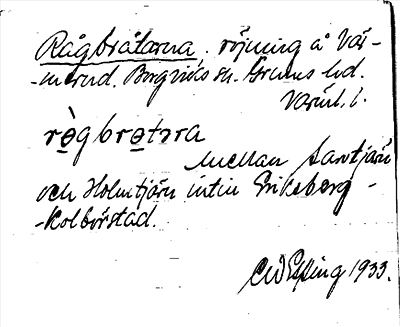 Rågbråtarna, röjning å Vär-
-merud. Borgviks sn. Grums hd.
Värml. l.
rə̀gbrətəra
mellan Savtjärn
och Holmtjärn intill Erikeberg -
-Kolbörstad.
1933.